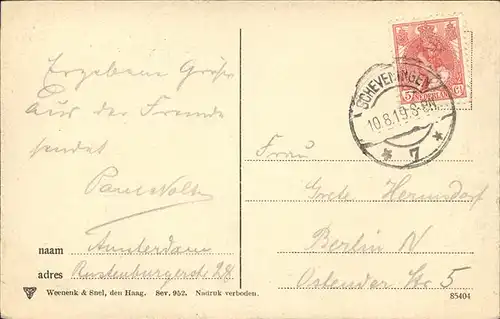 Ergebene Grüße
Aus der Fremde
sendet
Paul Nolte
naam Amsterdam
adres Rustenburgerstr 28
Weenenk & Snel, den Haag. Ser. 952. Nadruk verboden.
5 NEDERLAND CT
SCHEVENINGEN
10.8.19
7
Frau
Grete Hermsdorf
Berlin N
Ostender Str 5
85404